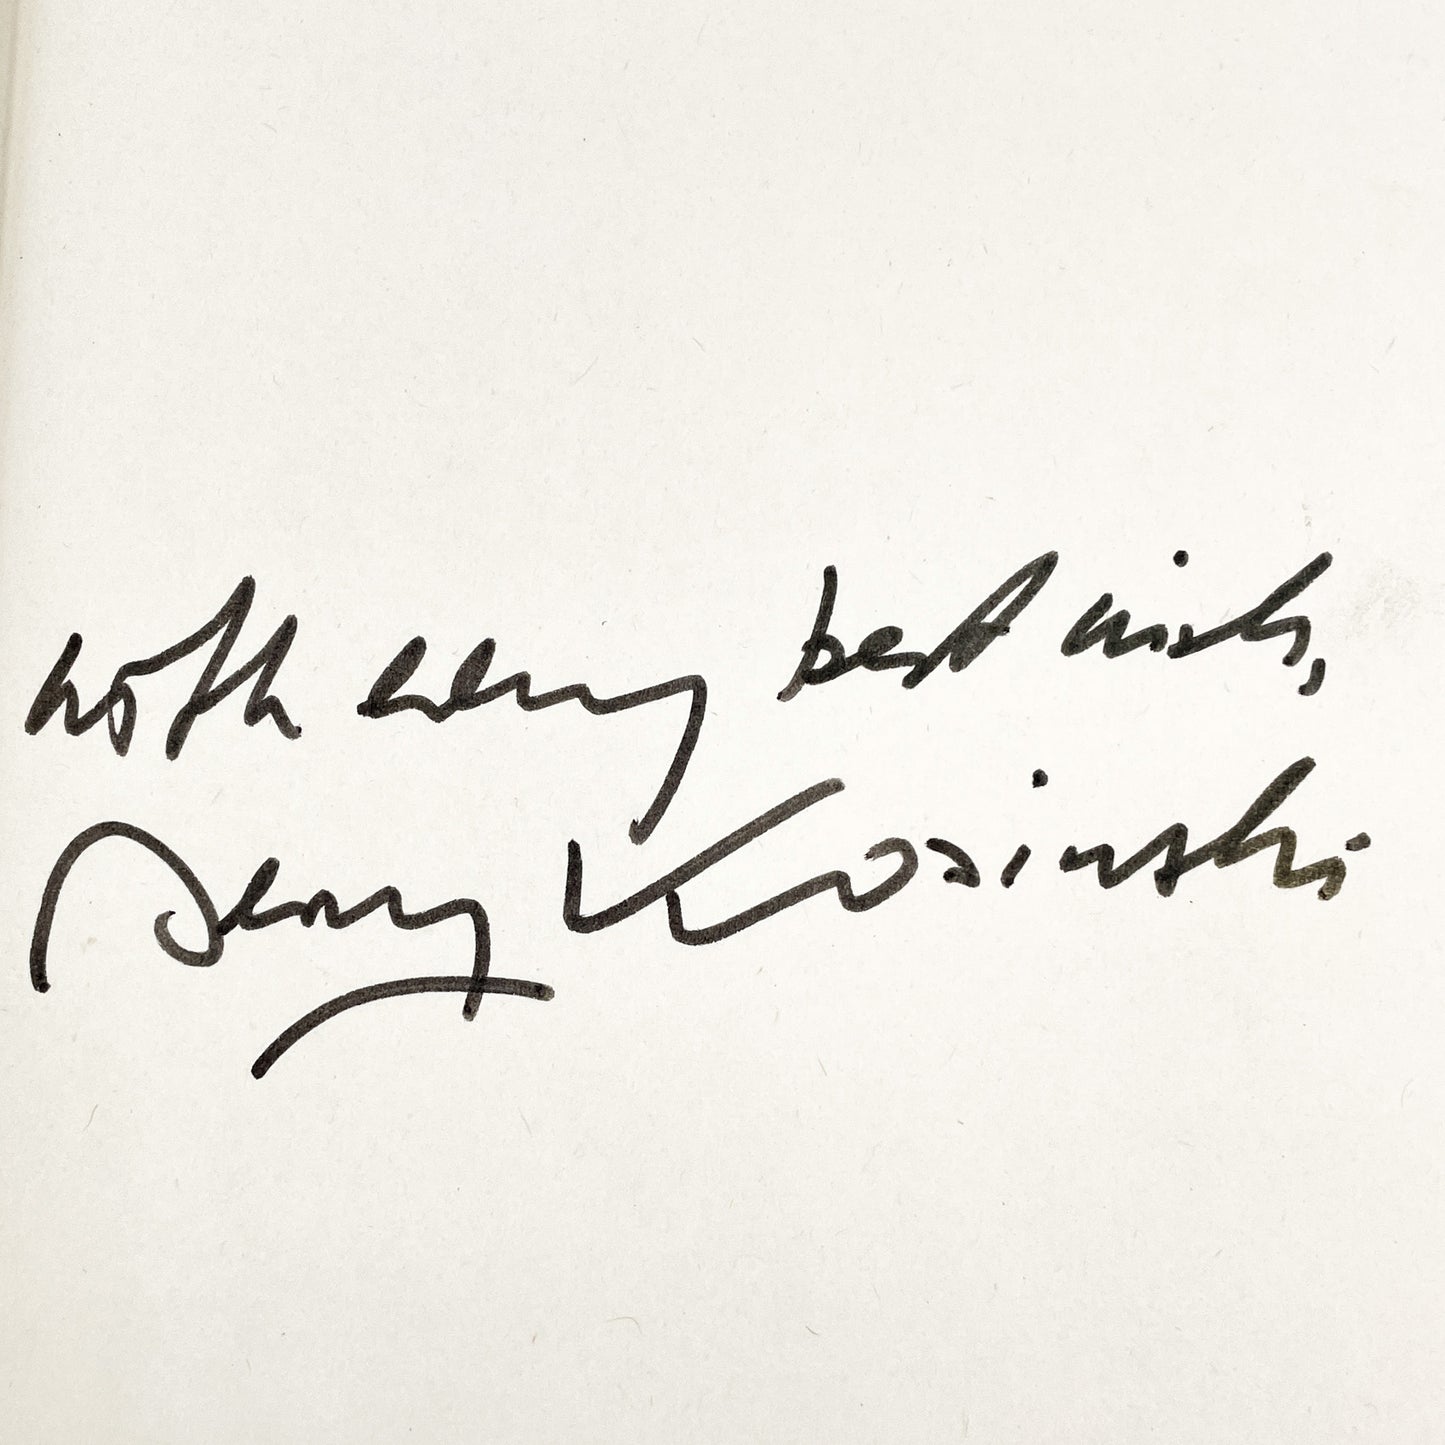 with every best wish,
Jerzy Kosinski